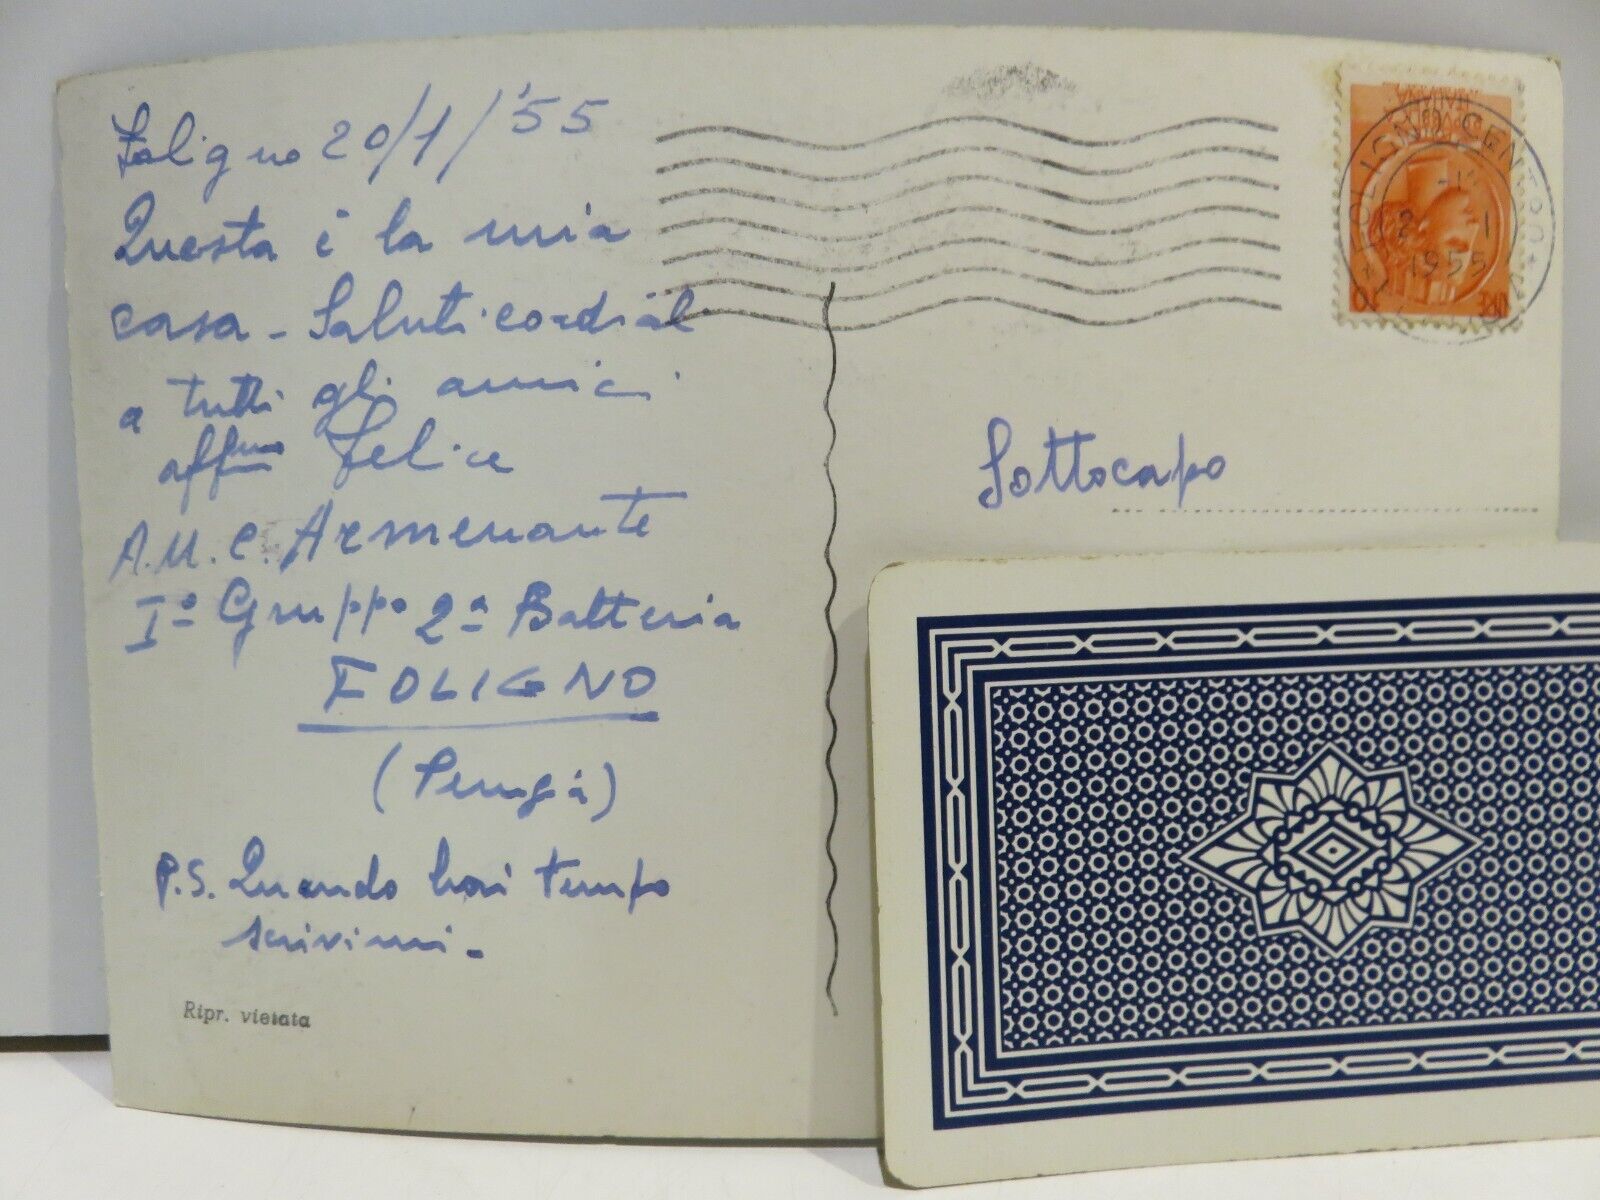 Foligno 20/1/'55
Questa è la mia
casa - Saluti cordiali
a tutti gli amici
affmo Felice
A.U.C. Armenante
I° Gruppo 2ª Batteria
FOLIGNO
(Perugia)
P.S. Quando hai tempo
scrivimi -
Ripr. vietata
FOLIGNO CENTRO
1955
Sottocapo